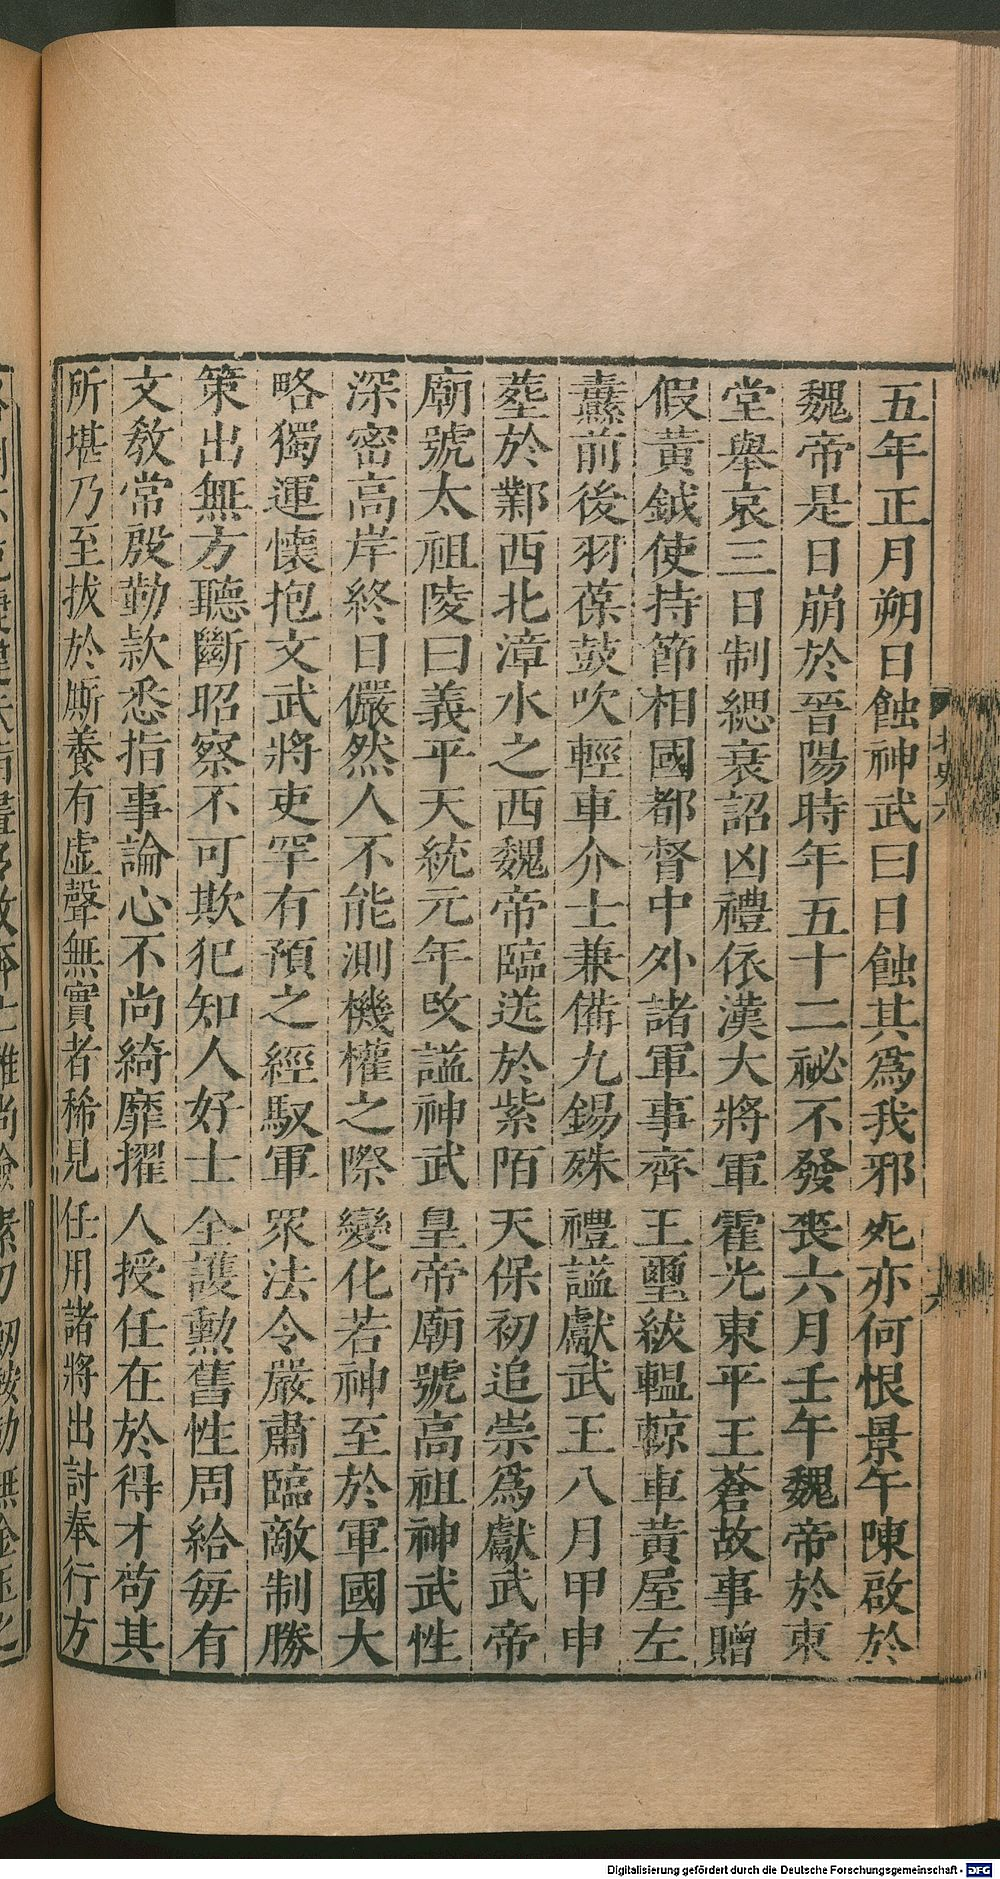 五年正月朔日蝕神武曰日蝕其爲我邪死亦何恨景午陳啟於
魏帝是日崩於晉陽時年五十二祕不發喪六月壬午魏帝於東
堂舉哀三日制緦衰詔凶禮依漢大將軍霍光東平王蒼故事贈
假黃鉞使持節相國都督中外諸軍事齊王璽紱轀輬車黃屋左
纛前後羽葆鼓吹輕車介士兼備九錫殊禮諡獻武王八月甲申
葬於鄴西北漳水之西魏帝臨送於紫陌天保初追崇爲獻武帝
廟號太祖陵曰義平天統元年改諡神武皇帝廟號高祖神武性
深密高岸終日儼然人不能測機權之際變化若神至於軍國大
略獨運懷抱文武將吏罕有預之經馭軍眾法令嚴肅臨敵制勝
策出無方聽斷昭察不可欺犯知人好士全護勳舊性周給每有
文教常殷勤款悉指事論心不尚綺靡擢人授任在於得才苟其
所堪乃至拔於廝養有虛聲無實者稀見任用諸將出討奉行方
北史六
六
Digitalisierung gefördert durch die Deutsche Forschungsgemeinschaft - DFG